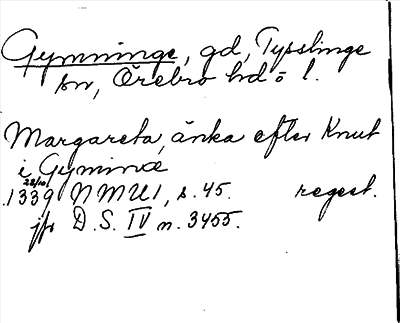 Gymninge, gd, Tysslinge
sn, Örebro hd o l.
Margareta, änka efter Knut
i Gyminæ
28/10
1339 NMU1, s. 45. regest.
jfr D.S. IV n. 3455.